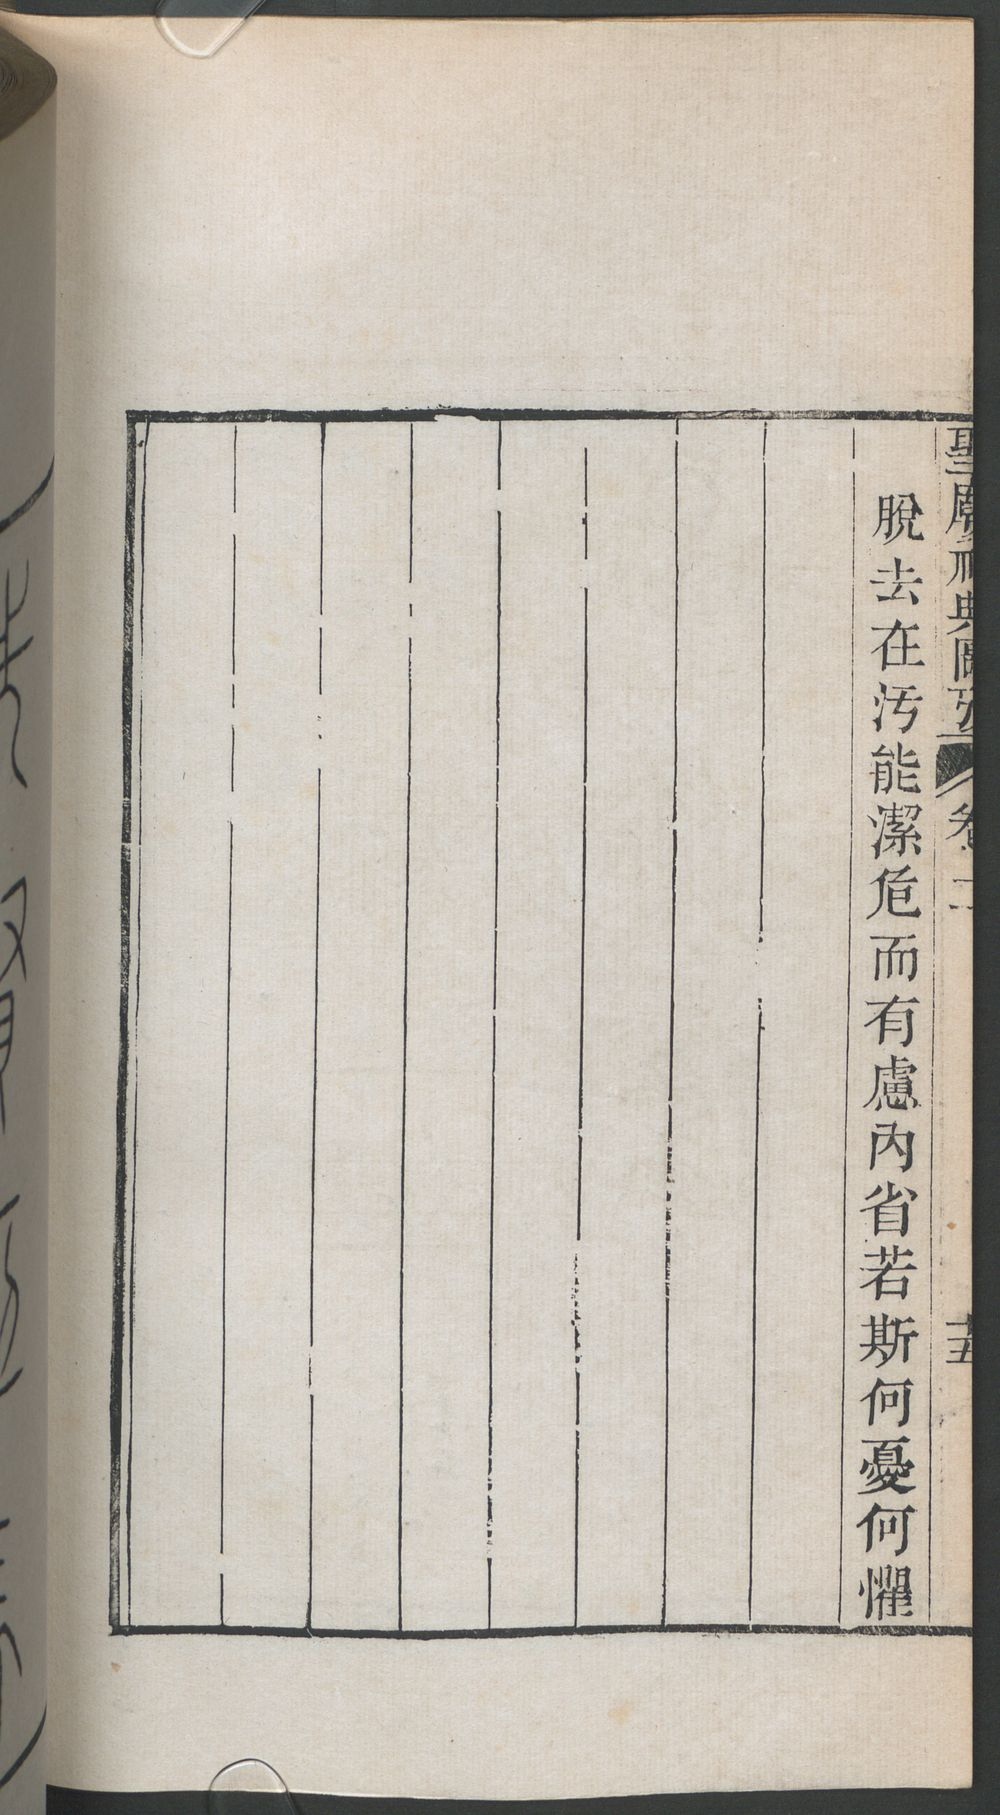 聖廟祀典圖攷 卷二 十五
脫去在汚能潔危而有慮內省若斯何憂何懼